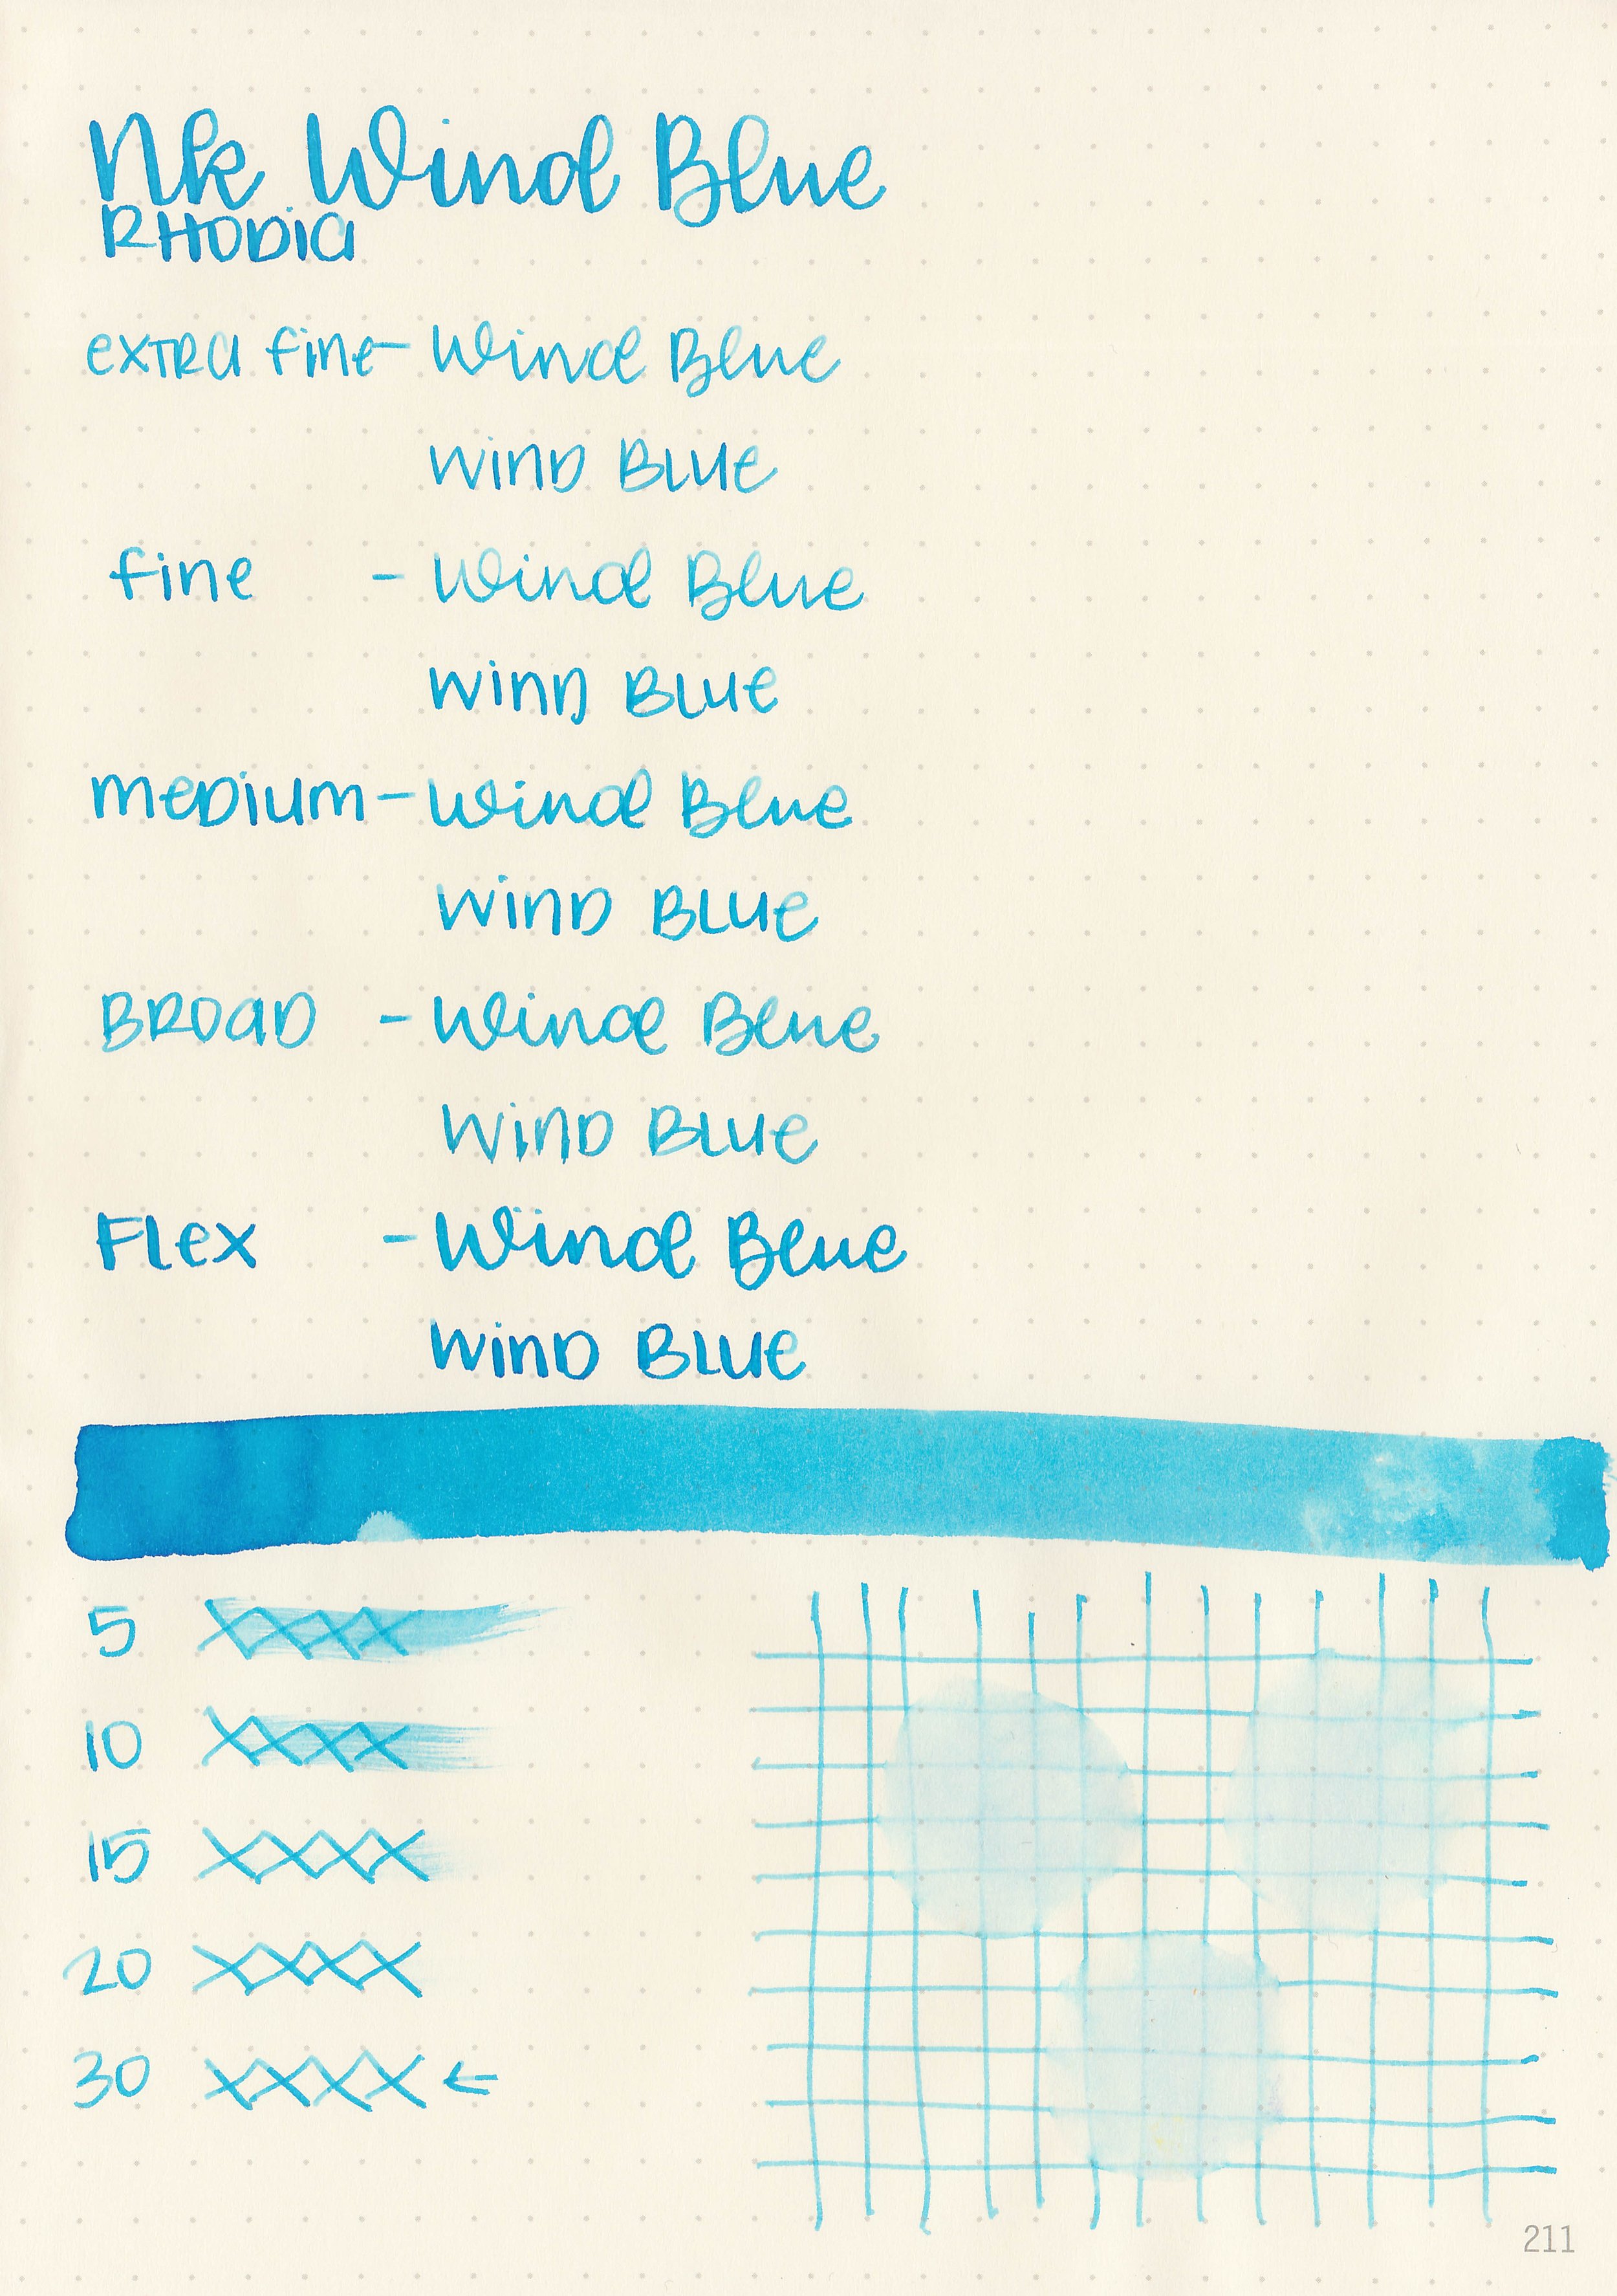 Nk Wind Blue
RHODIA
extra fine - Wind Blue
Wind Blue
fine - Wind Blue
Wind Blue
medium - Wind Blue
Wind Blue
Broad - Wind Blue
Wind Blue
Flex - Wind Blue
Wind Blue
5 XXXX
10 XXXX
15 XXXX
20 XXXX
30 XXXX ←
211